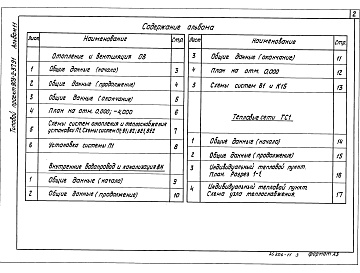 2
Содержание альбома
Лист Наименование Стр.
Отопление и вентиляция ОВ
1 Общие данные (начало) 3
2 Общие данные (продолжение) 4
3 Общие данные (окончание) 5
4 План на отм. 0,000; -4,000 6
5 Схемы систем отопления и теплоснабжения
установки П1. Схемы систем П1, В1, В2, ВЕ1, ВЕ2 7
6 Установка системы П1 8
Внутренние водопровод и канализация ВК
1 Общие данные (начало) 9
2 Общие данные (продолжение) 10
Лист Наименование Стр.
3 Общие данные (окончание) 11
4 План на отм. 0.000 12
5 Схемы систем В1 и К1Б 13
Тепловые сети ТС1
1 Общие данные (начало) 14
2 Общие данные (продолжение) 15
3 Индивидуальный тепловой пункт
План. Разрез 1-1 16
4 Индивидуальный тепловой пункт
Схема узла теплоснабжения. 17
Типовой проект
Альбом
формат А3